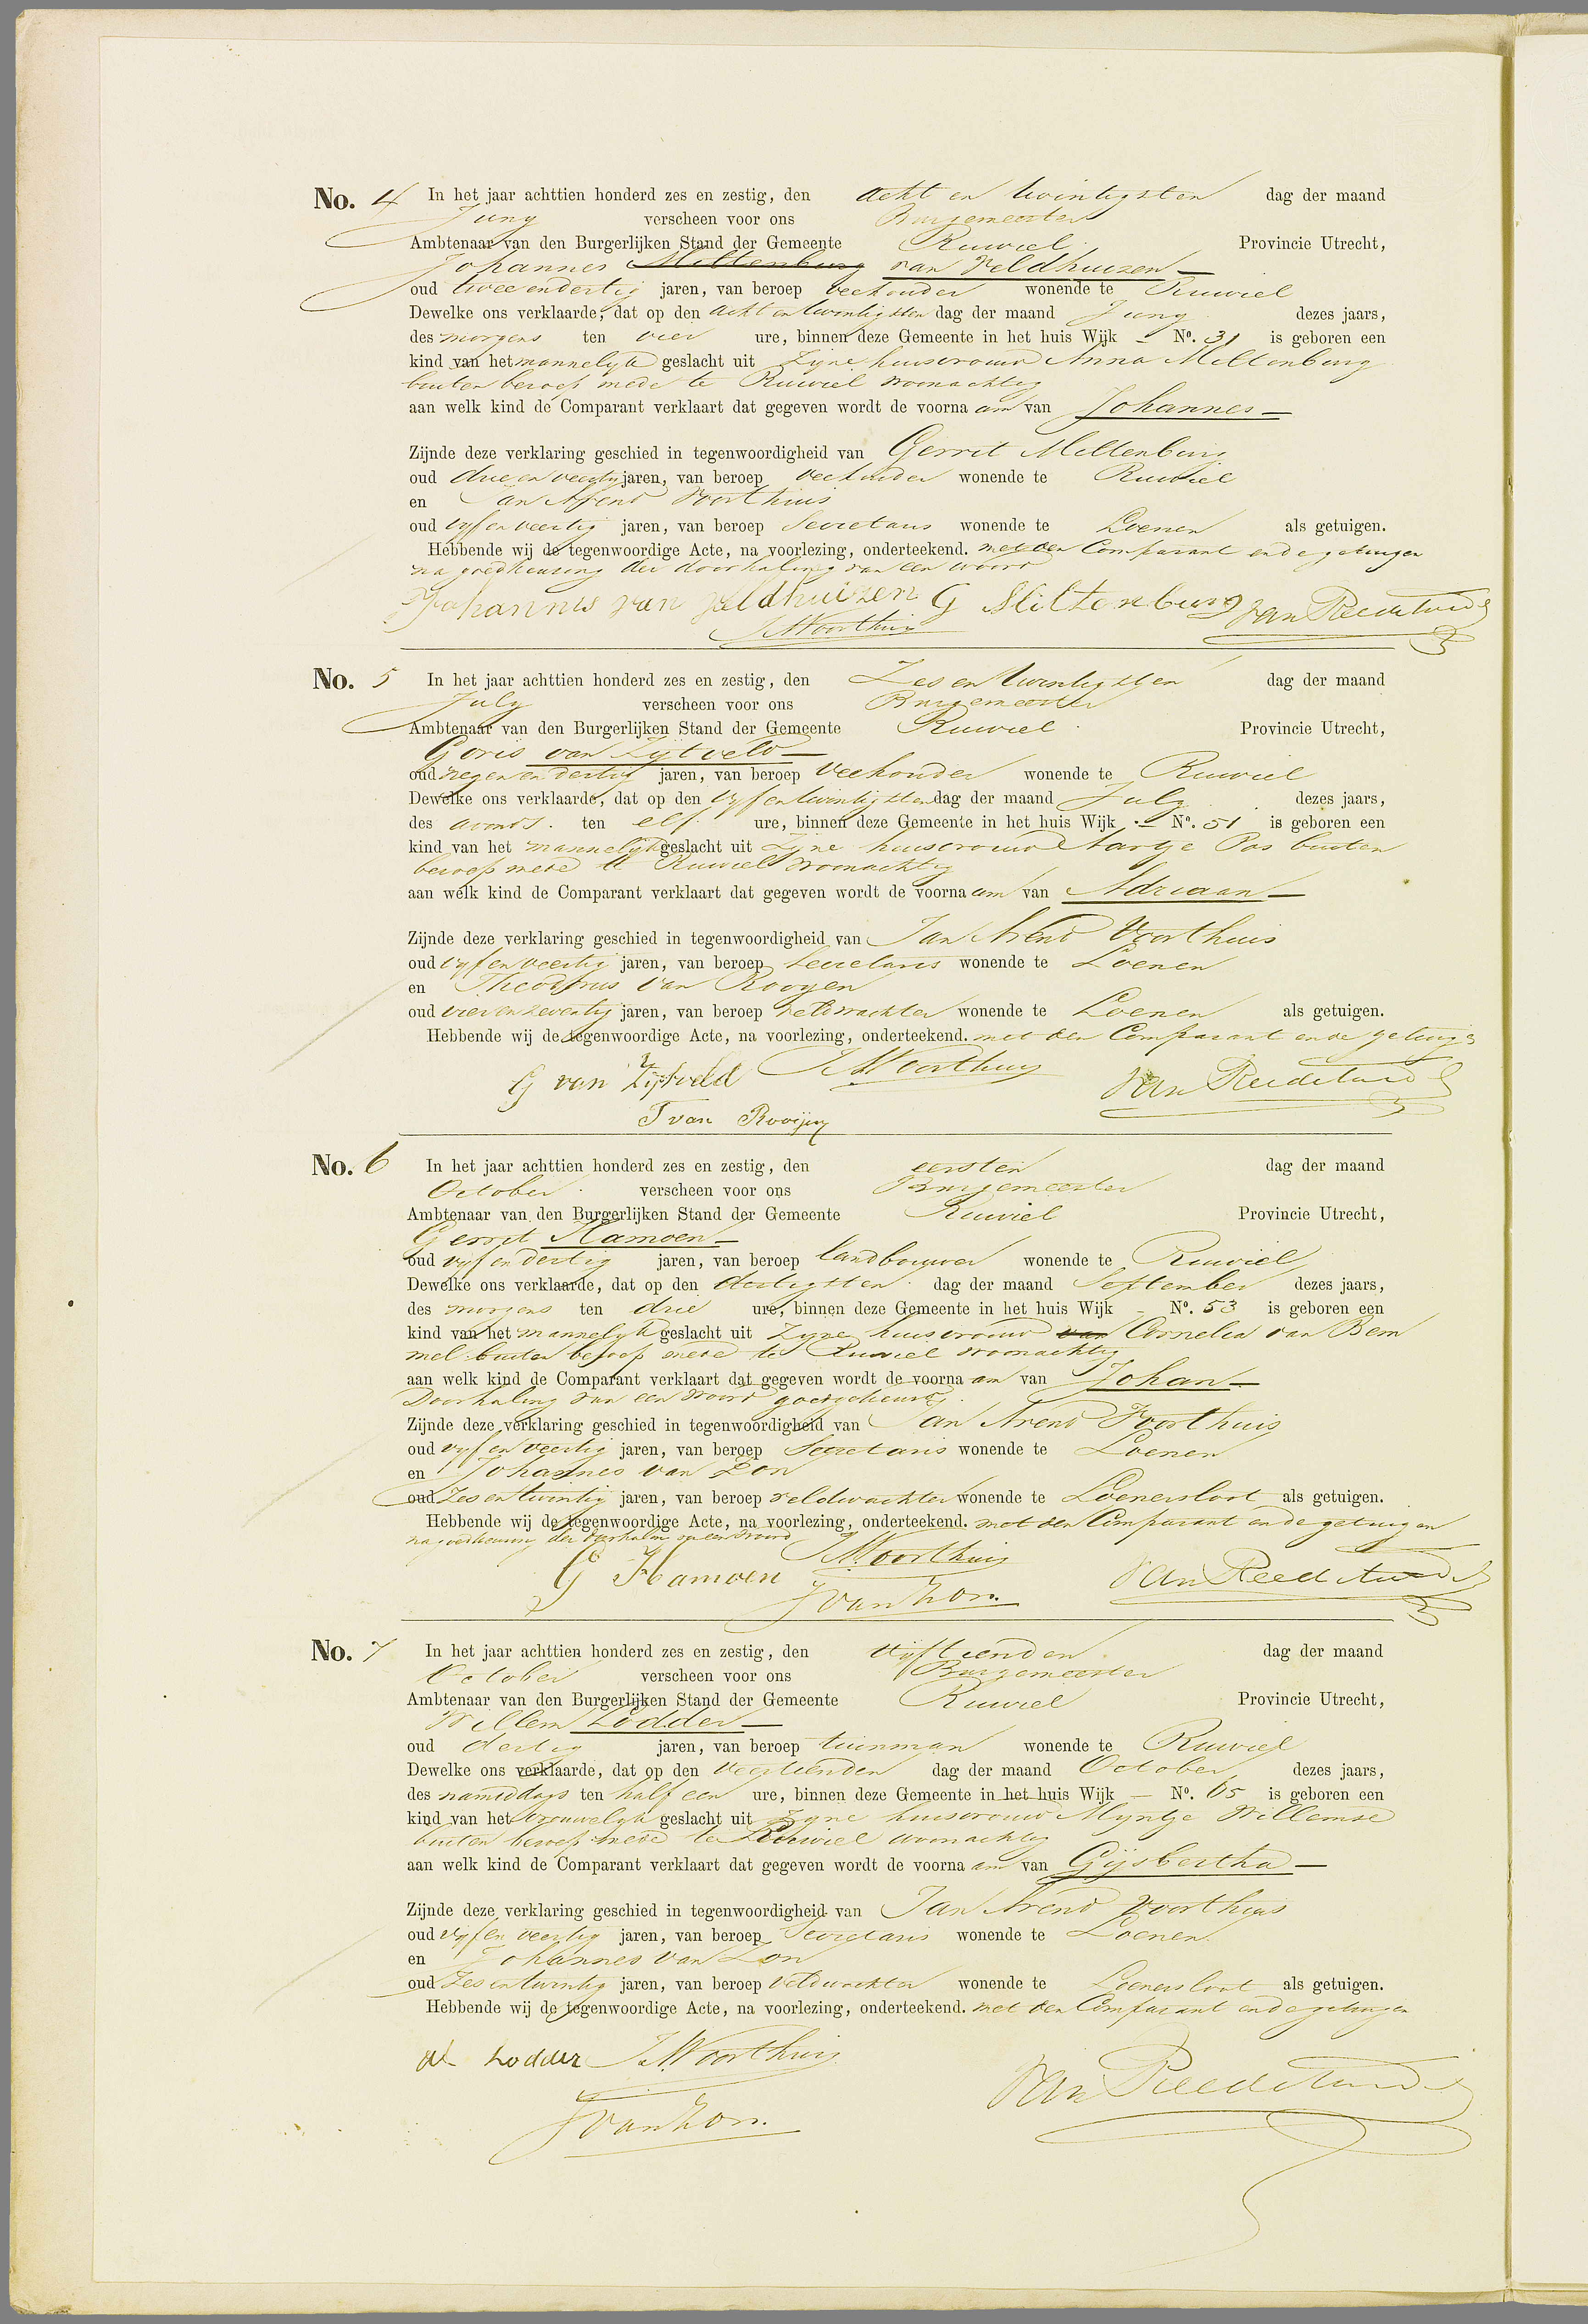 No. 4 In het jaar achttien honderd zes en zestig, den acht en twintigsten dag der maand
Juny verscheen voor ons Burgemeester
Ambtenaar van den Burgerlijken Stand der Gemeente Ruwiel Provincie Utrecht,
Johannes Miltenburg van Veldhuizen
oud twee en dertig jaren, van beroep veehouder wonende te Ruwiel
Dewelke ons verklaarde, dat op den acht en twintigsten dag der maand Juny dezes jaars,
des morgens ten vier ure, binnen deze Gemeente in het huis Wijk - No. 31 is geboren een
kind van het mannelyk geslacht uit zyne huisvrouw Anna Miltenburg
buiten beroep mede te Ruwiel woonachtig
aan welk kind de Comparant verklaart dat gegeven wordt de voorna am van Johannes
Zijnde deze verklaring geschied in tegenwoordigheid van Gerrit Miltenburg
oud drie en veertig jaren, van beroep veehouder wonende te Ruwiel
en Jan Arend Voorthuis
oud vyf en veertig jaren, van beroep Secretaris wonende te Loenen als getuigen.
Hebbende wij de tegenwoordige Acte, na voorlezing, onderteekend. met den Comparant en de getuigen
na goedkeuring der doorhaling van een woord
Johannis van Veldhuizen G Miltenburg van Reede
JAVoorthuis
No. 5 In het jaar achttien honderd zes en zestig, den Zes en twintigsten dag der maand
July verscheen voor ons Burgemeester
Ambtenaar van den Burgerlijken Stand der Gemeente Ruwiel Provincie Utrecht,
Goris van Zijtveld
oud negen en dertig jaren, van beroep Veehouder wonende te Ruwiel
Dewelke ons verklaarde, dat op den vyf en twintigsten dag der maand July dezes jaars,
des avonds ten elf ure, binnen deze Gemeente in het huis Wijk - No. 51 is geboren een
kind van het mannelyk geslacht uit zyne huisvrouw Aartje Pos buiten
beroep mede te Ruwiel woonachtig
aan welk kind de Comparant verklaart dat gegeven wordt de voorna am van Adriaan
Zijnde deze verklaring geschied in tegenwoordigheid van Jan Arend Voorthuis
oud vyf en veertig jaren, van beroep Secretaris wonende te Loenen
en Theodorus van Rooyen
oud vier en zeventig jaren, van beroep veldwachter wonende te Loenen als getuigen.
Hebbende wij de tegenwoordige Acte, na voorlezing, onderteekend. met den Comparant en de getuig
G van Zijtveld JAVoorthuis van Reede
T van Rooijen
No. 6 In het jaar achttien honderd zes en zestig, den eersten dag der maand
October verscheen voor ons Burgemeester
Ambtenaar van den Burgerlijken Stand der Gemeente Ruwiel Provincie Utrecht,
Gerrit Hamoen
oud vyf en dertig jaren, van beroep landbouwer wonende te Ruwiel
Dewelke ons verklaarde, dat op den dertigsten dag der maand September dezes jaars,
des morgens ten drie ure, binnen deze Gemeente in het huis Wijk - No. 53 is geboren een
kind van het mannelyk geslacht uit zyne huisvrouw van Cornelia van Bem
mel buiten beroep mede te Ruwiel woonachtig
aan welk kind de Comparant verklaart dat gegeven wordt de voorna am van Johan
Doorhaling van een woord goedgekeurd
Zijnde deze verklaring geschied in tegenwoordigheid van Jan Arend Voorthuis
oud vyf en veertig jaren, van beroep Secretaris wonende te Loenen
en Johannes van Zon
oud zes en twintig jaren, van beroep veldwachter wonende te Loenersloot als getuigen.
Hebbende wij de tegenwoordige Acte, na voorlezing, onderteekend. met den Comparant en de getuigen
na goedkeuring der doorhaling van een woord
G Hamoen JAVoorthuis van Reede
J van Zon.
No. 7 In het jaar achttien honderd zes en zestig, den vijftienden dag der maand
October verscheen voor ons Burgemeester
Ambtenaar van den Burgerlijken Stand der Gemeente Ruwiel Provincie Utrecht,
Willem Lodder
oud dertig jaren, van beroep tuinman wonende te Ruwiel
Dewelke ons verklaarde, dat op den veertienden dag der maand October dezes jaars,
des namiddags ten half een ure, binnen deze Gemeente in het huis Wijk - No. 65 is geboren een
kind van het vrouwelyk geslacht uit zyne huisvrouw Myntje Willemse
buiten beroep mede te Ruwiel woonachtig
aan welk kind de Comparant verklaart dat gegeven wordt de voorna am van Gijsbertha
Zijnde deze verklaring geschied in tegenwoordigheid van Jan Arend Voorthuis
oud vyf en veertig jaren, van beroep Secretaris wonende te Loenen
en Johannes van Zon
oud zes en twintig jaren, van beroep veldwachter wonende te Loenersloot als getuigen.
Hebbende wij de tegenwoordige Acte, na voorlezing, onderteekend. met den Comparant en de getuigen
W Lodder JAVoorthuis van Reede
J van Zon.